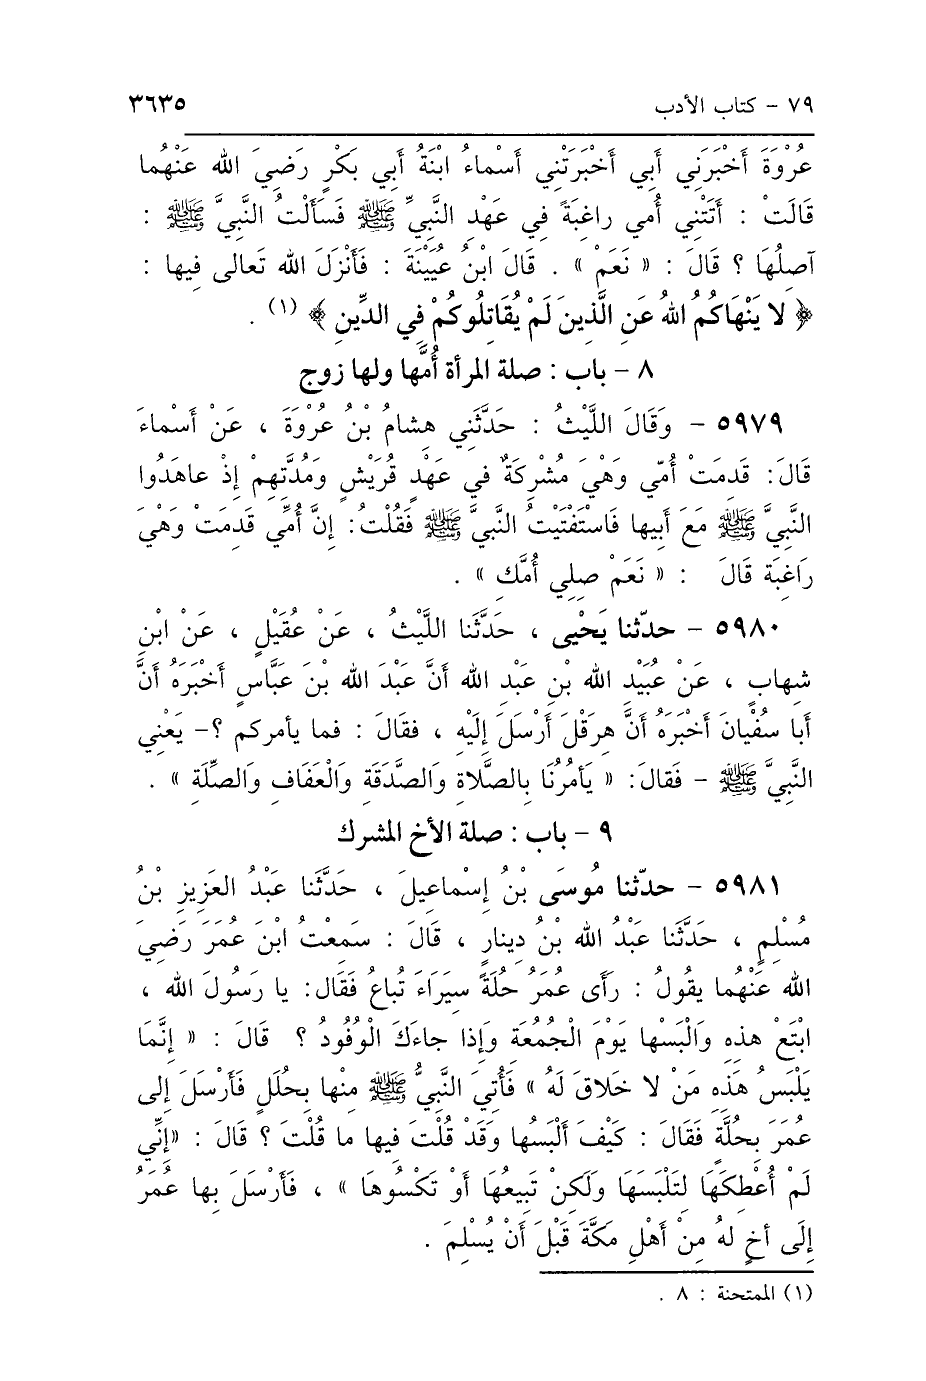 ٧٩ - كتاب الأدب ٣٦٣٥
عُرْوَةَ أَخْبَرَنِي أَبِي أَخْبَرَتْنِي أَسْماءُ ابْنَةُ أَبِي بَكْرٍ رَضِيَ الله عَنْهُما
قَالَتْ : أَتَتْنِي أُمي راغِبَةً فِي عَهْدِ النَّبِيِّ ﷺ فَسَأَلْتُ النَّبِيَّ ﷺ :
آصِلُهَا ؟ قَالَ : « نَعَمْ » . قَالَ ابْنُ عُيَيْنَةَ : فَأَنْزَلَ الله تَعالى فِيها :
﴿ لا يَنْهَاكُمُ اللهُ عَنِ الَّذِينَ لَمْ يُقَاتِلُوكُمْ فِي الدِّينِ ﴾ (١) .
٨ - باب : صلة المرأة أُمَّها ولها زوج
٥٩٧٩ - وَقَالَ اللَّيْثُ : حَدَّثَنِي هِشامُ بْنُ عُرْوَةَ ، عَنْ أَسْماءَ
قَالَ: قَدِمَتْ أُمّي وَهْيَ مُشْرِكَةٌ في عَهْدِ قُرَيْشٍ وَمُدَّتِهِمْ إِذْ عاهَدُوا
النَّبِيَّ ﷺ مَعَ أَبِيها فَاسْتَفْتَيْتُ النَّبِيَّ ﷺ فَقُلْتُ: إِنَّ أُمِّي قَدِمَتْ وَهْيَ
رَاغِبَة قَالَ : « نَعَمْ صِلِي أُمَّكِ » .
٥٩٨٠ - حدّثنا يَحْيى ، حَدَّثَنَا اللَّيْثُ ، عَنْ عُقَيْلٍ ، عَنْ ابنِ
شِهابٍ ، عَنْ عُبَيْدِ الله بْنِ عَبْدِ الله أَنَّ عَبْدَ الله بْنَ عَبَّاسٍ أَخْبَرَهُ أَنَّ
أَبا سُفْيانَ أَخْبَرَهُ أَنَّ هِرَقْلَ أَرْسَلَ إِلَيْهِ ، فقَالَ : فما يأمركم ؟- يَعْنِي
النَّبِيَّ ﷺ - فَقالَ: « يَأمُرُنَا بِالصَّلاةِ وَالصَّدَقَةِ وَالْعَفَافِ وَالصِّلَةِ » .
٩ - باب : صلة الأخ المشرك
٥٩٨١ - حدّثنا مُوسَى بْنُ إِسْماعِيلَ ، حَدَّثَنا عَبْدُ العَزِيزِ بْنُ
مُسْلِمٍ ، حَدَّثَنا عَبْدُ الله بْنُ دِينارٍ ، قَالَ : سَمِعْتُ ابْنَ عُمَرَ رَضِيَ
الله عَنْهُما يقُولُ : رَأَى عُمَرُ حُلَةً سِيَرَاءَ تُباعُ فَقَال: يا رَسُولَ الله ،
ابْتَعْ هذِهِ وَالْبَسْها يَوْمَ الْجُمُعَةِ وَإِذا جاءَكَ الْوُفُودُ ؟ قَالَ : « إِنَّمَا
يَلْبَسُ هَذِهِ مَنْ لا خَلاقَ لَهُ » فَأُتِيَ النَّبِيُّ ﷺ مِنْها بِحُلَلٍ فَأَرْسَلَ إِلى
عُمَرَ بِحُلَّةٍ فَقَالَ : كَيْفَ أَلْبَسُها وَقَدْ قُلْتَ فِيها ما قُلْتَ ؟ قَالَ : «إِنِّي
لَمْ أُعْطِكَهَا لِتَلْبَسَهَا وَلَكِنْ تَبِيعُهَا أَوْ تَكْسُوهَا » ، فَأَرْسَلَ بِها عُمَرُ
إِلَى أَخٍ لهُ مِنْ أَهْلِ مَكَّةَ قَبْلَ أَنْ يُسْلِمَ .
(١) الممتحنة : ٨ .